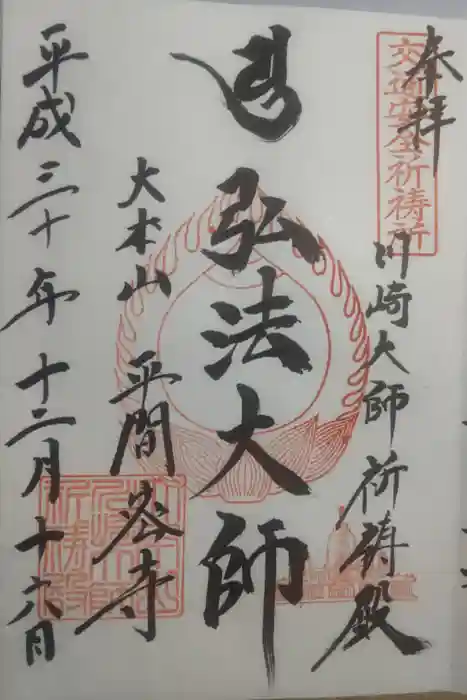 奉拝
交通安全祈祷所
川崎大師 祈祷殿
弘法大師
大本山 平間寺
平成三十年十二月十六日